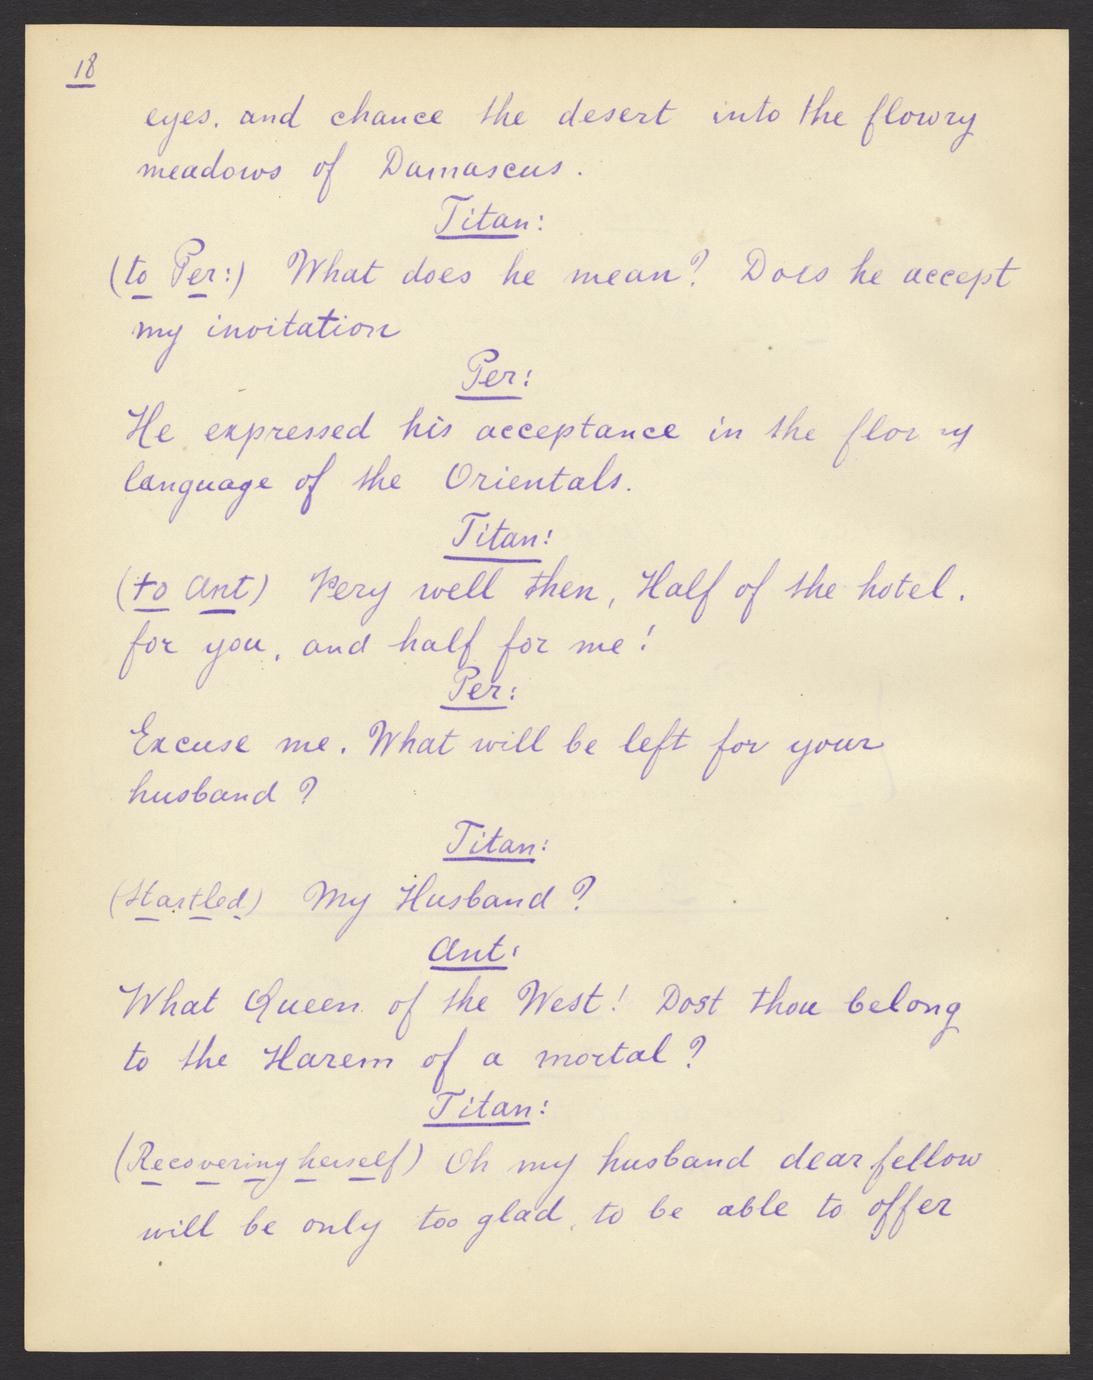 18
eyes. and chance the desert into the flowry
meadows of Damascus.
Titan:
(to Per:) What does he mean? Does he accept
my invitation
Per:
He expressed his acceptance in the flowry
language of the Orientals.
Titan:
(to Ant) Very well then, Half of the hotel.
for you, and half for me!
Per:
Excuse me. What will be left for your
husband?
Titan:
(Startled) My Husband?
Ant:
What Queen of the West! Dost thou belong
to the Harem of a mortal?
Titan:
(Recovering herself) Oh my husband dear fellow
will be only too glad, to be able to offer